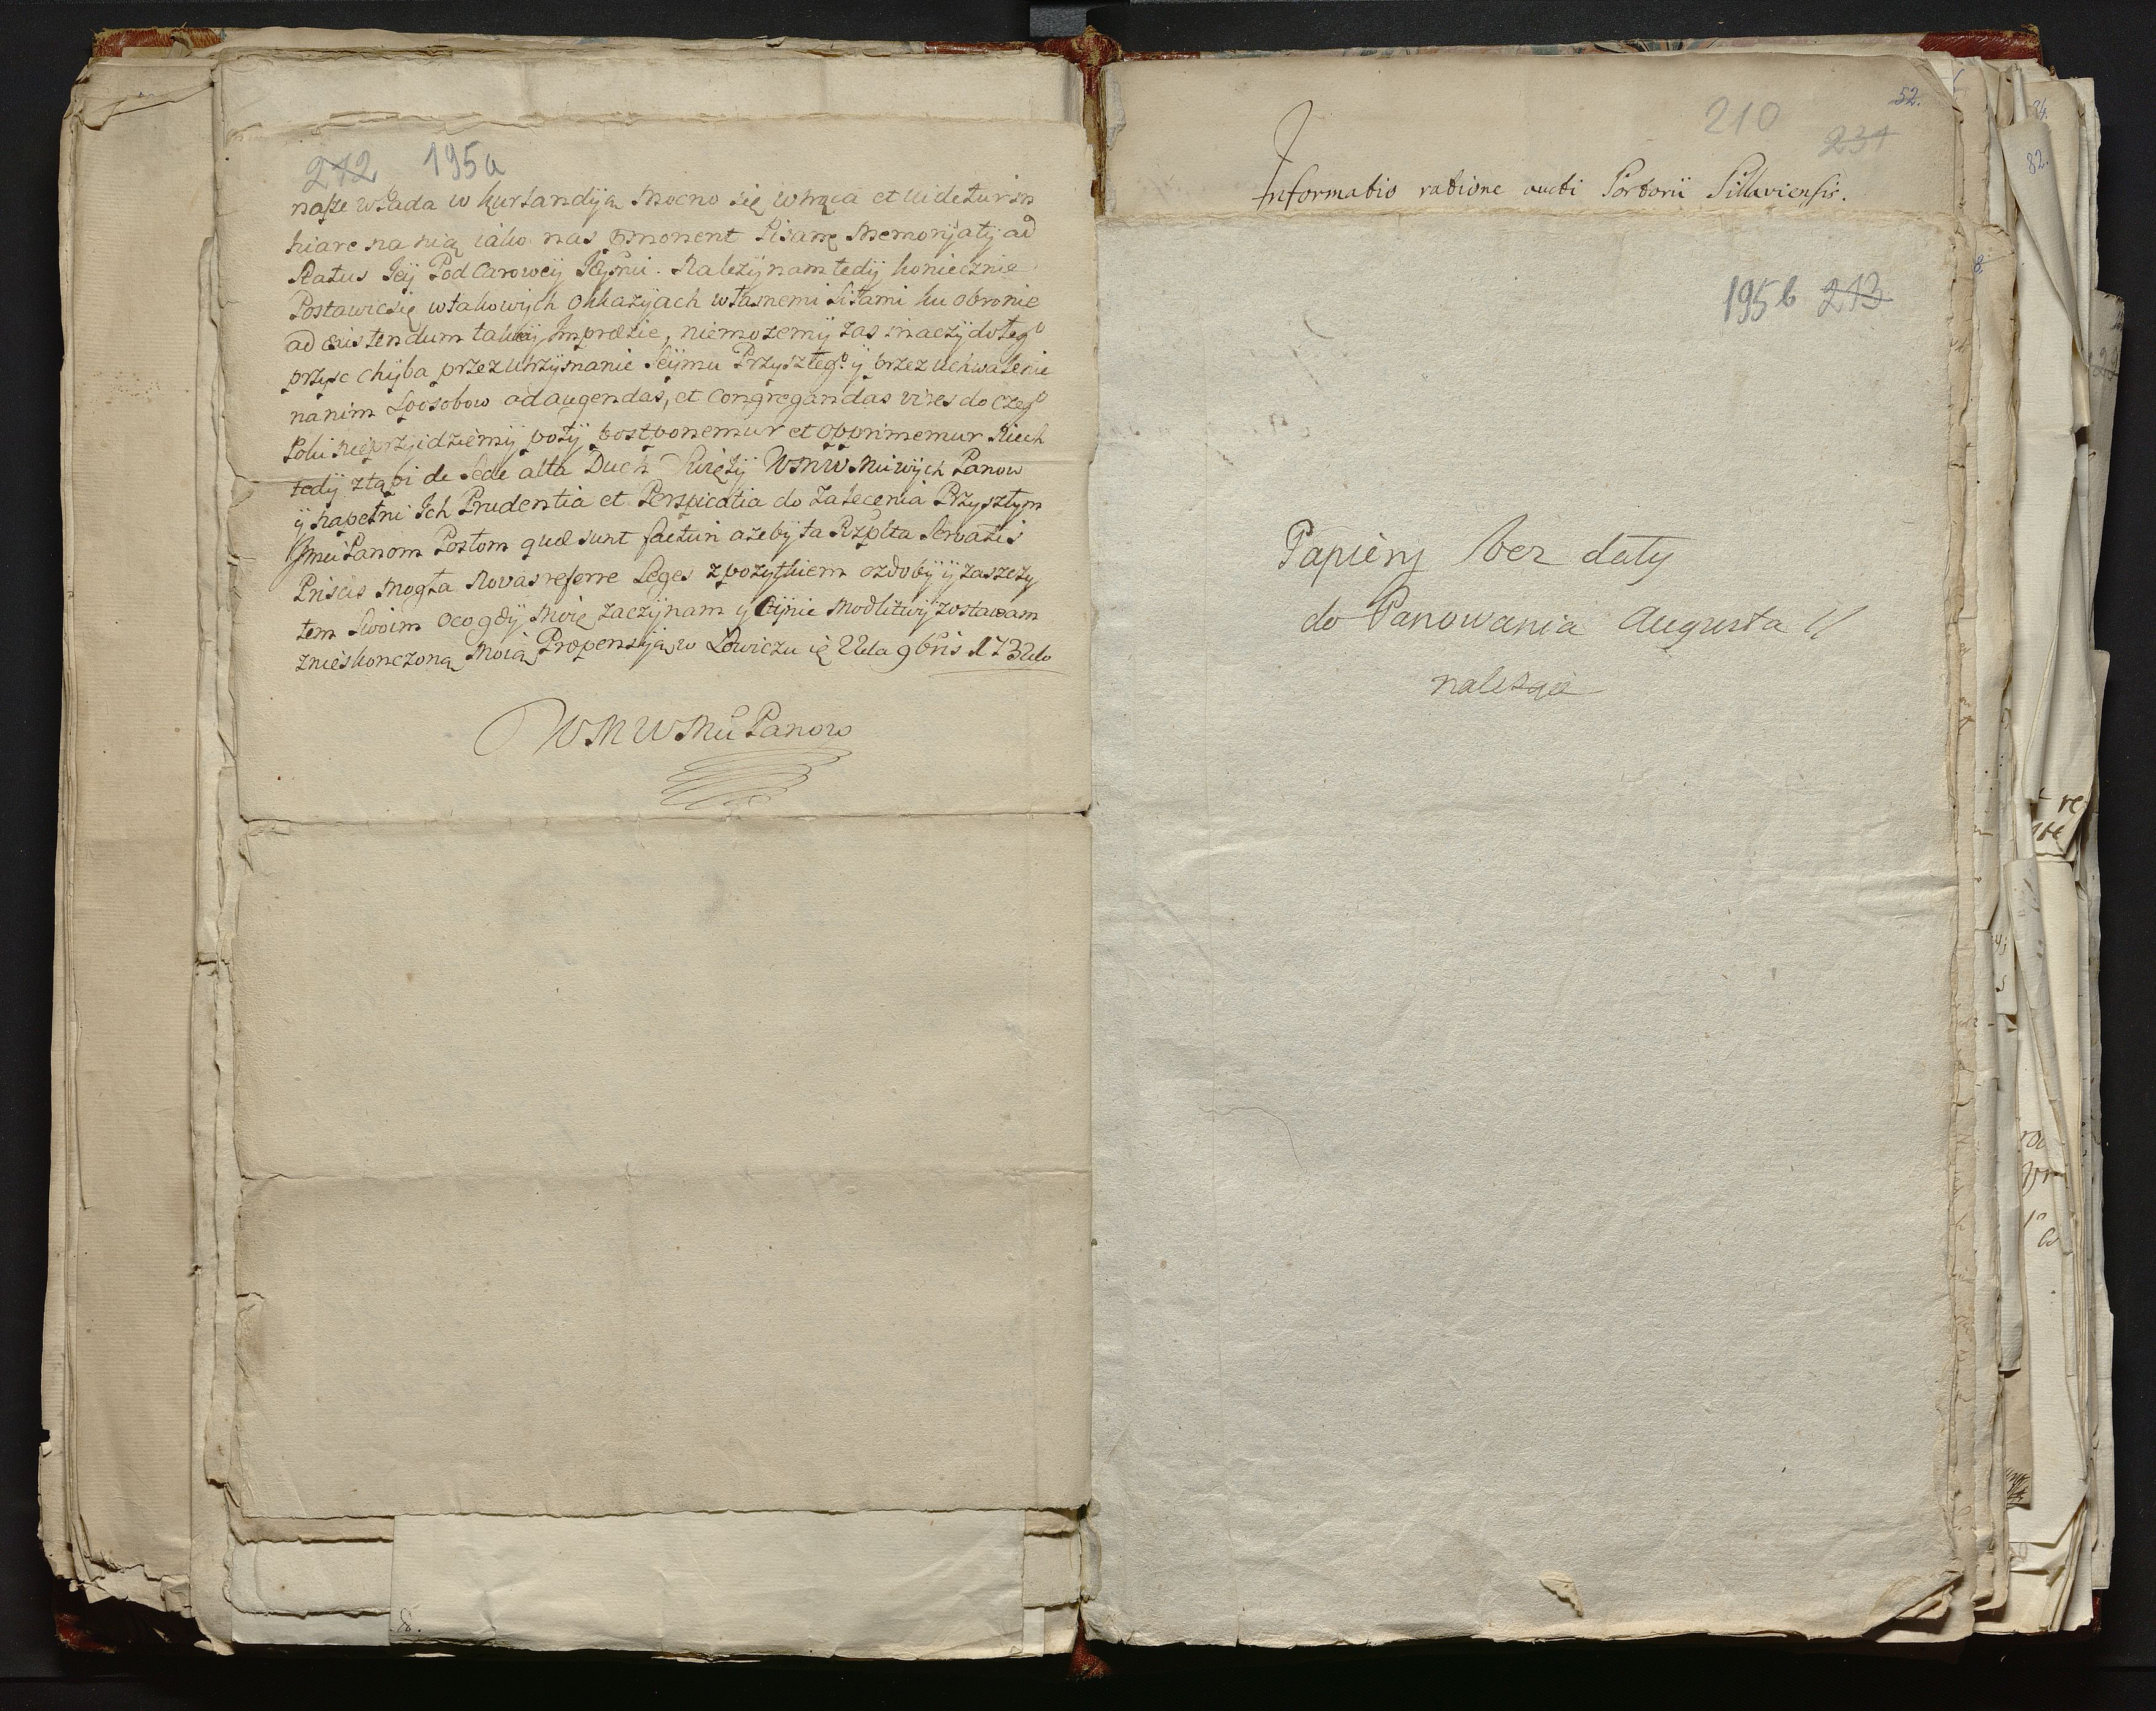 212 195a
nasze władа w Kurlandyią Mocno się wtrąca et videtur in
hiare na nią iako nas Pisane Memoryały ad
Status Jey Pod Carowey Jeyśnu. Należy nam tedy koniecznie
Postawic się wtakowych Okkazyiach własnemi siłami ku obronie
ad takiey Imprezie, niemożemy zas inaczy do teg°
przysc chyba przez utrzymanie Seymu Przyszłeg° y przez uchwalenie
na nim Sposobow ad augendas, et Congregandas vires do czeg°
Poki nieprzyidziemy poty postponemur et opprimemur Niech
tedy ztąpi de Sede alta Duch Święty WMW Panow
y napełni Ich Prudentia et Perspicatia do zalecenia Przyszłym
Panom Posłom quæ sunt azeby ta Rzplta Servatis
Priscis Mogła Novas referre Leges z pozytkiem ozdoby y zaszczy
tem Swoim oco gdy Msze zaczynam y Modlitwy zostawam
znieskonczoną Moią Propensyią w Łowiczu 22da 9bris 1732do
WMWMM Panow
8.
210 52.
231
Informatio ratione aucti Portorii Pillaviensis.
195b 213
Papiery bez daty
do Panowania Augusta II
należące
82.